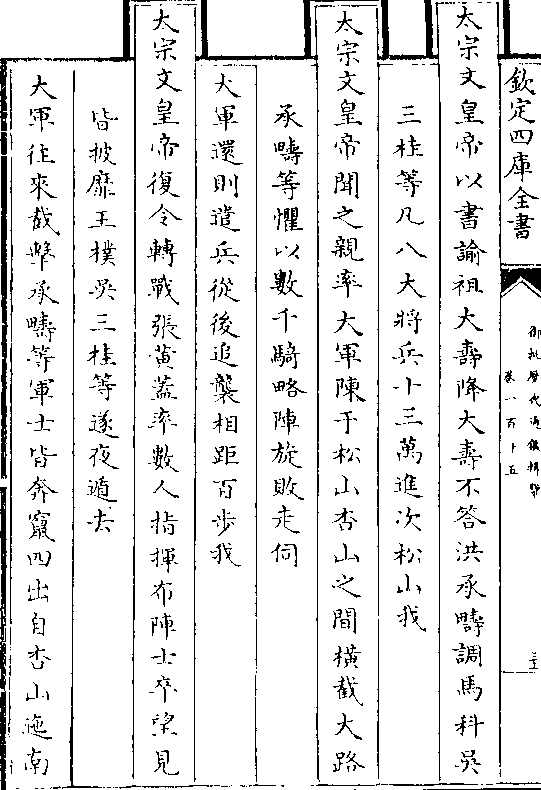 欽定四庫全書
御批歷代通鑑輯覽
卷一百十五
太宗文皇帝以書諭祖大壽降大壽不答洪承疇調馬科吳
三桂等凡八大將兵十三萬進次松山我
太宗文皇帝聞之親率大軍陳于松山杏山之間橫截大路
承疇等懼以數千騎略陣旋敗走伺
大軍還則遣兵從後追襲相距百步我
太宗文皇帝復令轉戰張黄蓋率數人指揮布陣士卒望見
皆披靡王樸吳三桂等遂夜遁去
大軍往來截擊承疇等軍士皆奔竄四出自杏山迤南